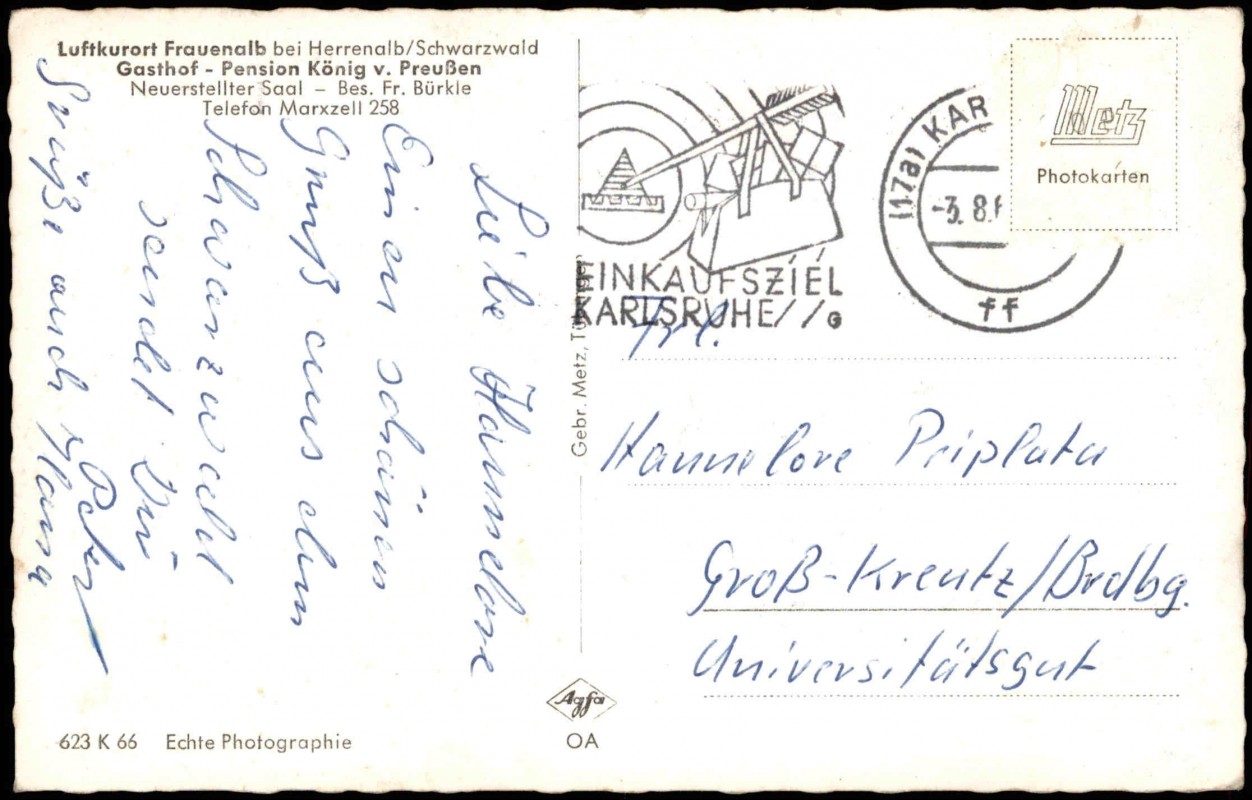 Luftkurort Frauenalb bei Herrenalb/Schwarzwald
Gasthof - Pension König v. Preußen
Neuerstellter Saal – Bes. Fr. Bürkle
Telefon Marxzell 258
Liebe Hannelore
Einen schönen
Gruß aus dem
Schwarzwald
sendet Dir
Peter
Grüße auch Hans
EINKAUFSZIEL
KARLSRUHE//
G
(17a) KAR
-3. 8. 6
ff
Metz
Photokarten
Gebr. Metz, Tübingen
Frl.
Hannelore Priplata
Groß-Kreutz/Brdbg.
Universitätsgut
Agfa
OA
623 K 66 Echte Photographie